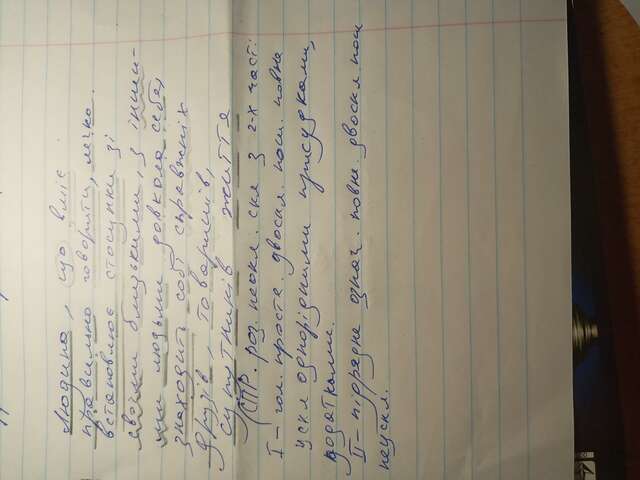 Людина, що вміє
правильно говорити, легко
встановлює стосунки зі
своїми близькими, з інши-
ми людьми довкола себе,
знаходить собі справжніх
друзів, товаришів,
супутників життя
(СПР. роз. неокл. скл з 2-х част:
I - гол. проста. двоскл. пош. повна
ускл однорідними присудками,
додатками.
II - підрядне означ. повне. двоскл пош
неускл.